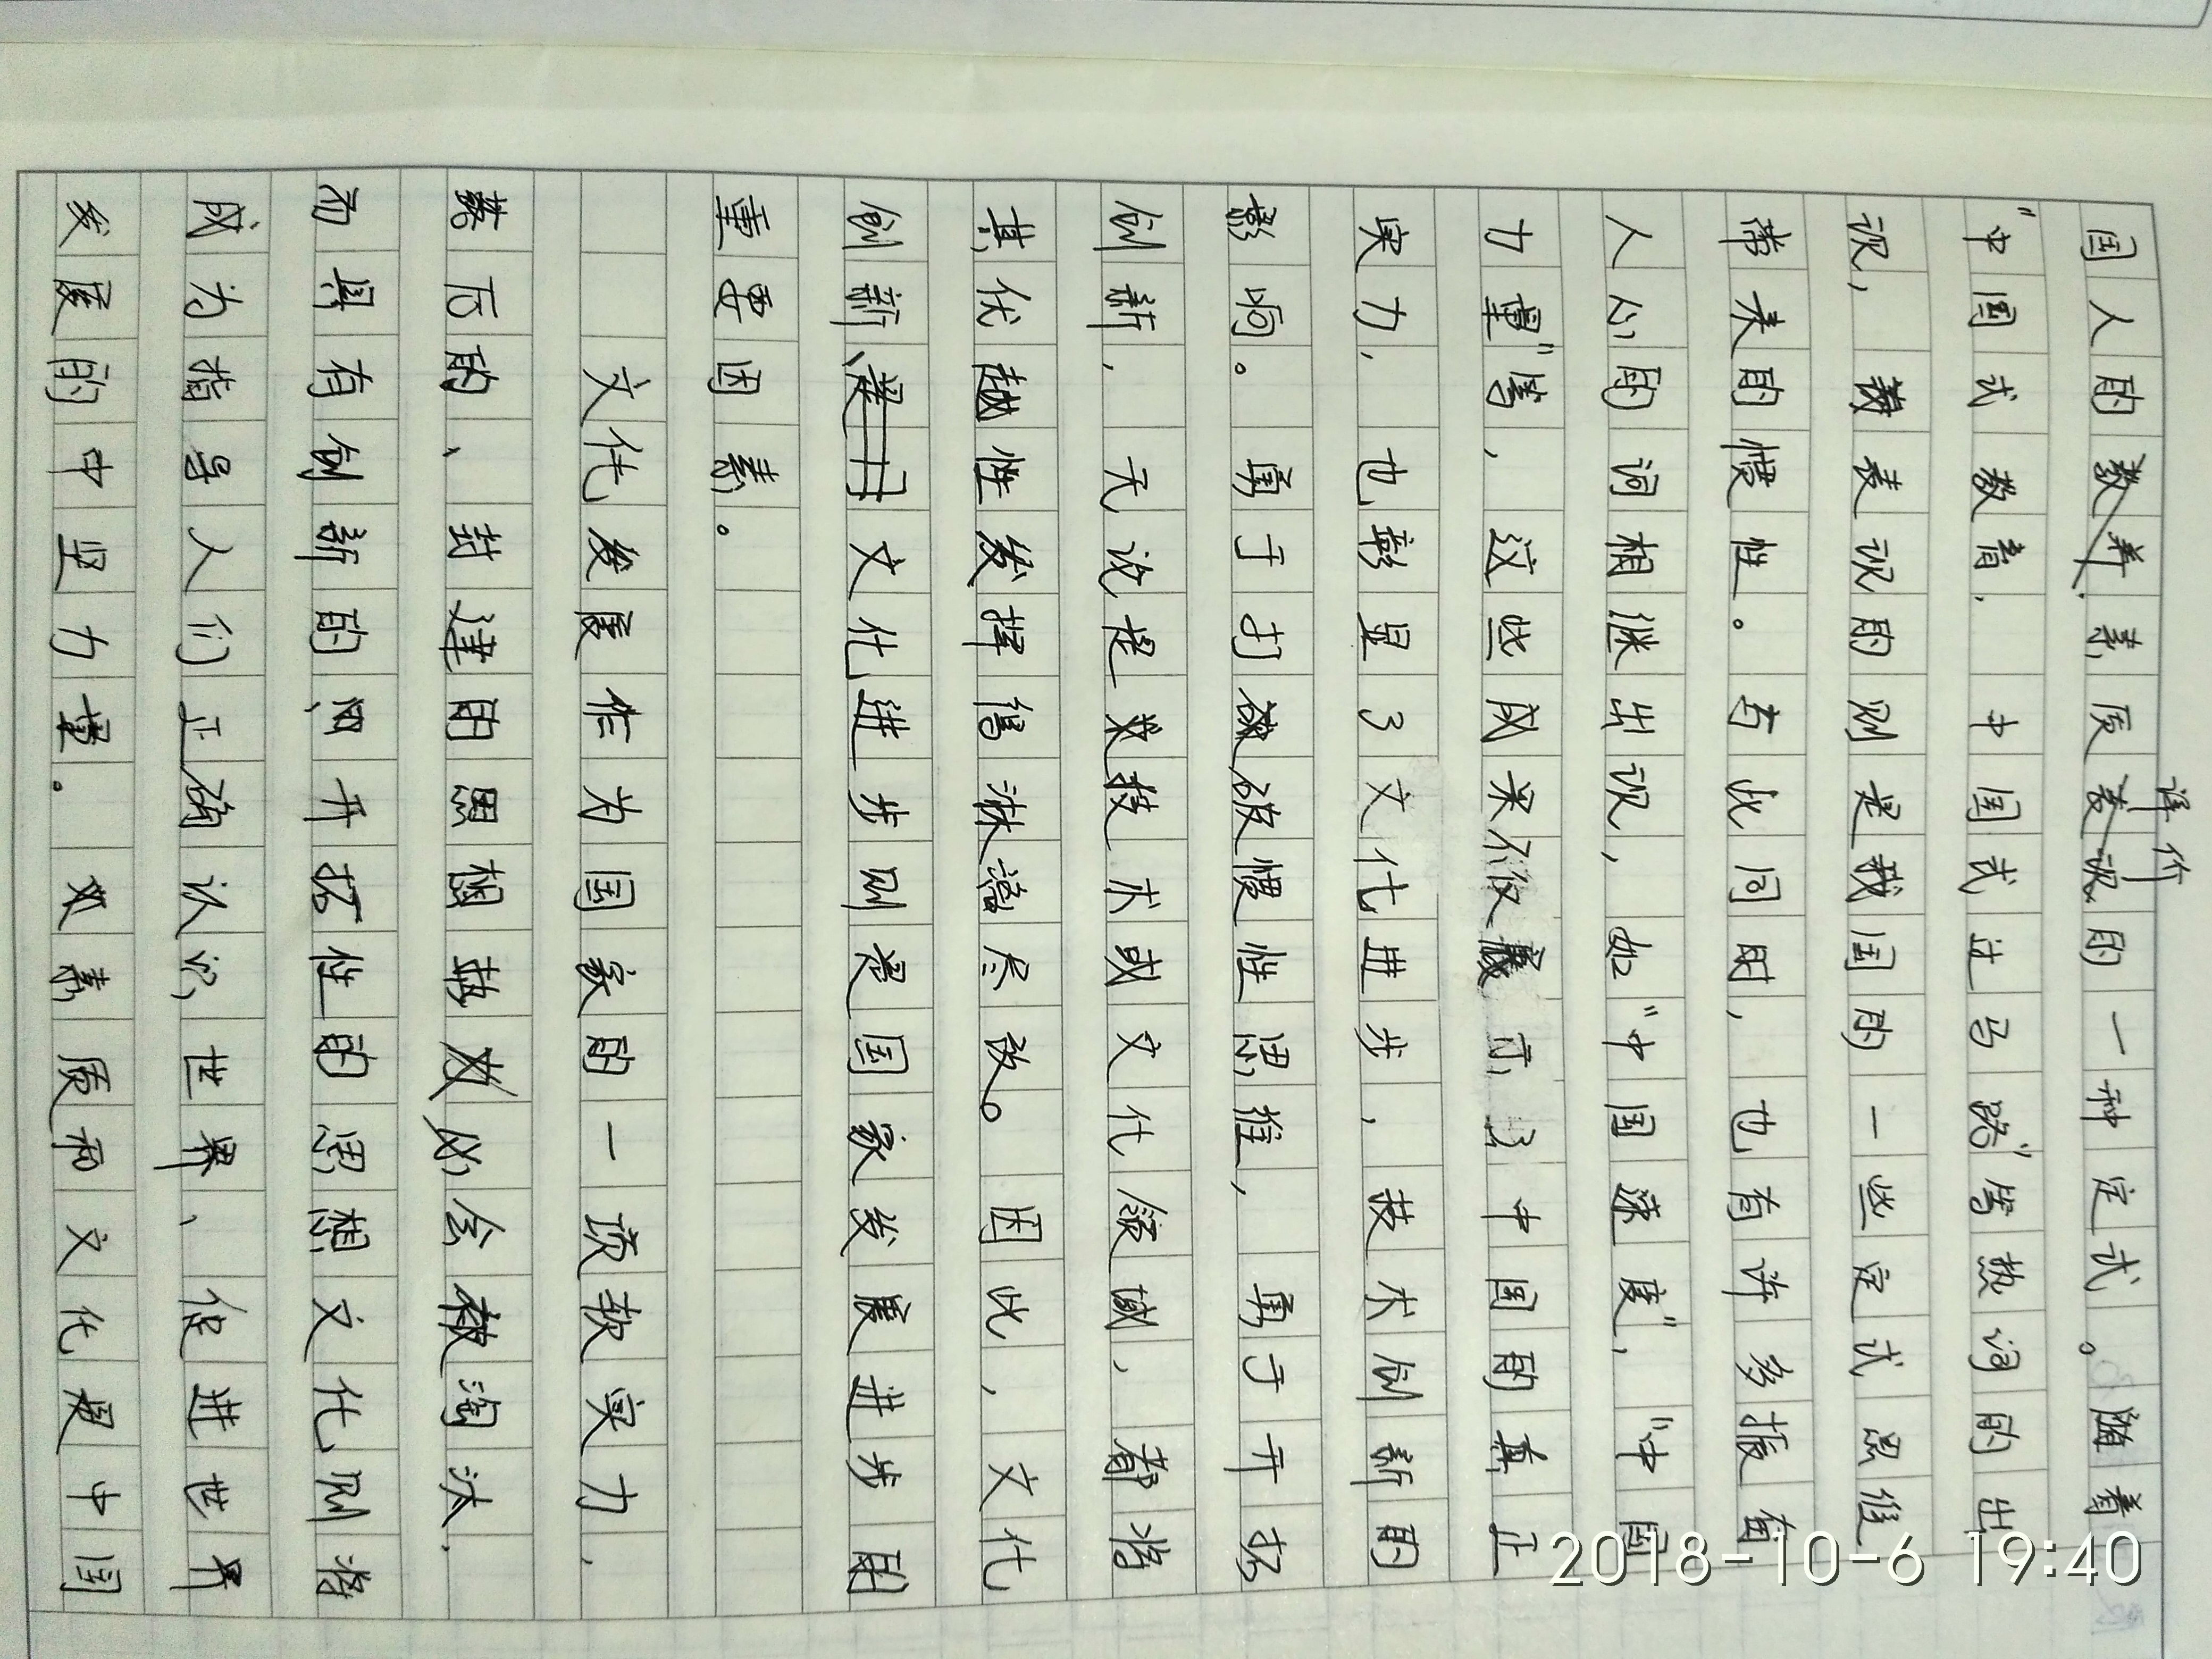 国人的素质评价的一种定式。随着
"中国式教育,中国式过马路"等热词的出
现,表现的则是我国的一些定式思维
带来的惯性。与此同时,也有许多振奋
人心的词相继出现,如"中国速度","中国
力量"等,这些成果不仅展示了中国的真正
实力,也彰显了文化进步,技术创新的
影响。勇于打破惯性思维,勇于开拓
创新,无论是技术或文化领域,都将
其优越性发挥得淋漓尽致。因此,文化
创新、文化进步则是国家发展进步的
重要因素。
文化发展作为国家的一项软实力,
落后的、封建的思想势必会被淘汰,
而具有创新的开拓性的思想文化则将
成为指导人们正确认识世界、促进世界
发展的中坚力量。素质和文化是中国
2018-10-6 19:40